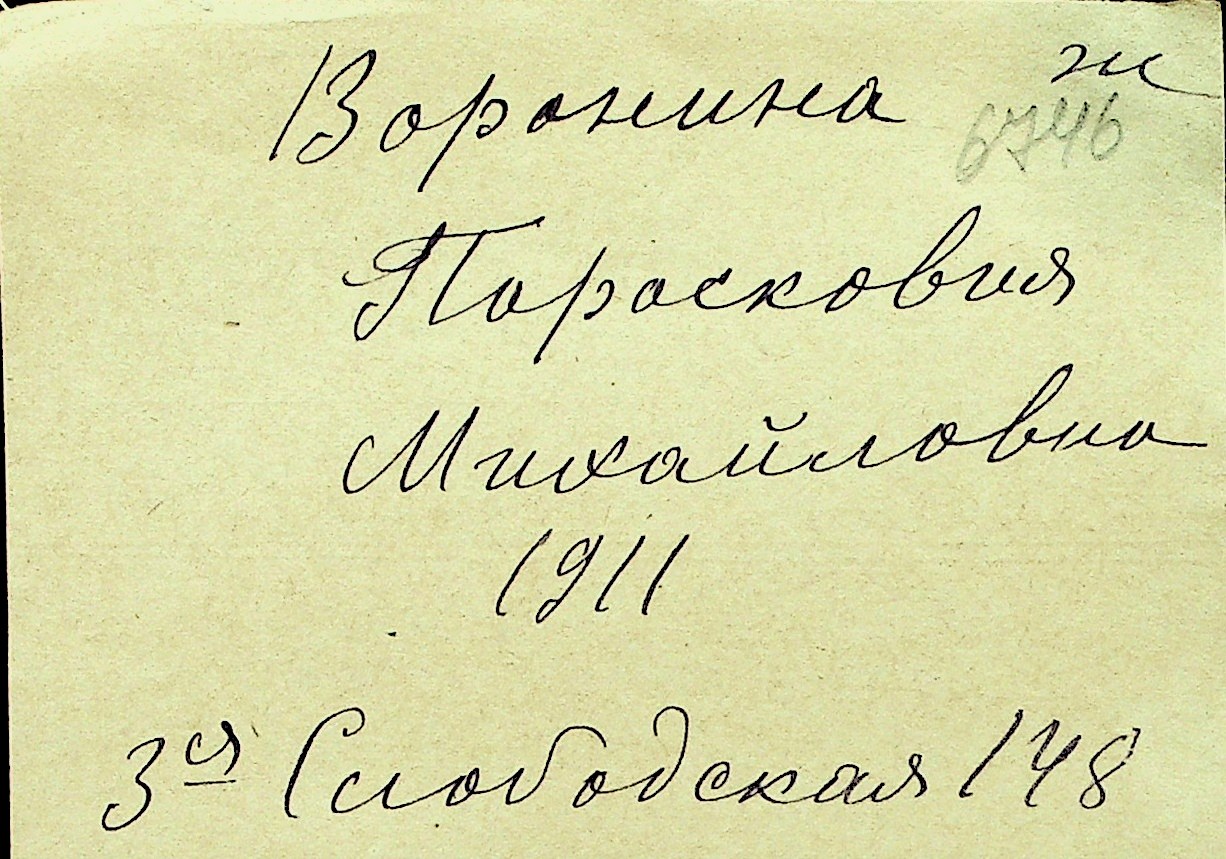 Воронина ж
6746
Парасковия
Михайловна
1911
3я Слободская 148